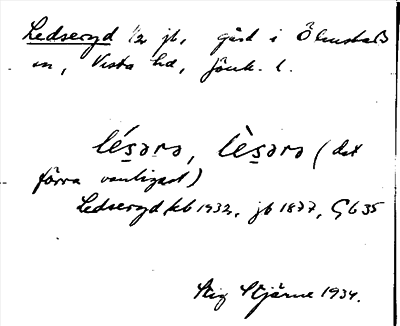 Ledseryd 1/2 jb, gård i Ölmstads
sn, Vista hd, Jönk. l.
lésərə, lèsərə (det
förra vanligast)
Ledseryd kb 1932, jb 1877, GS 35
Stig Stjärne 1934.